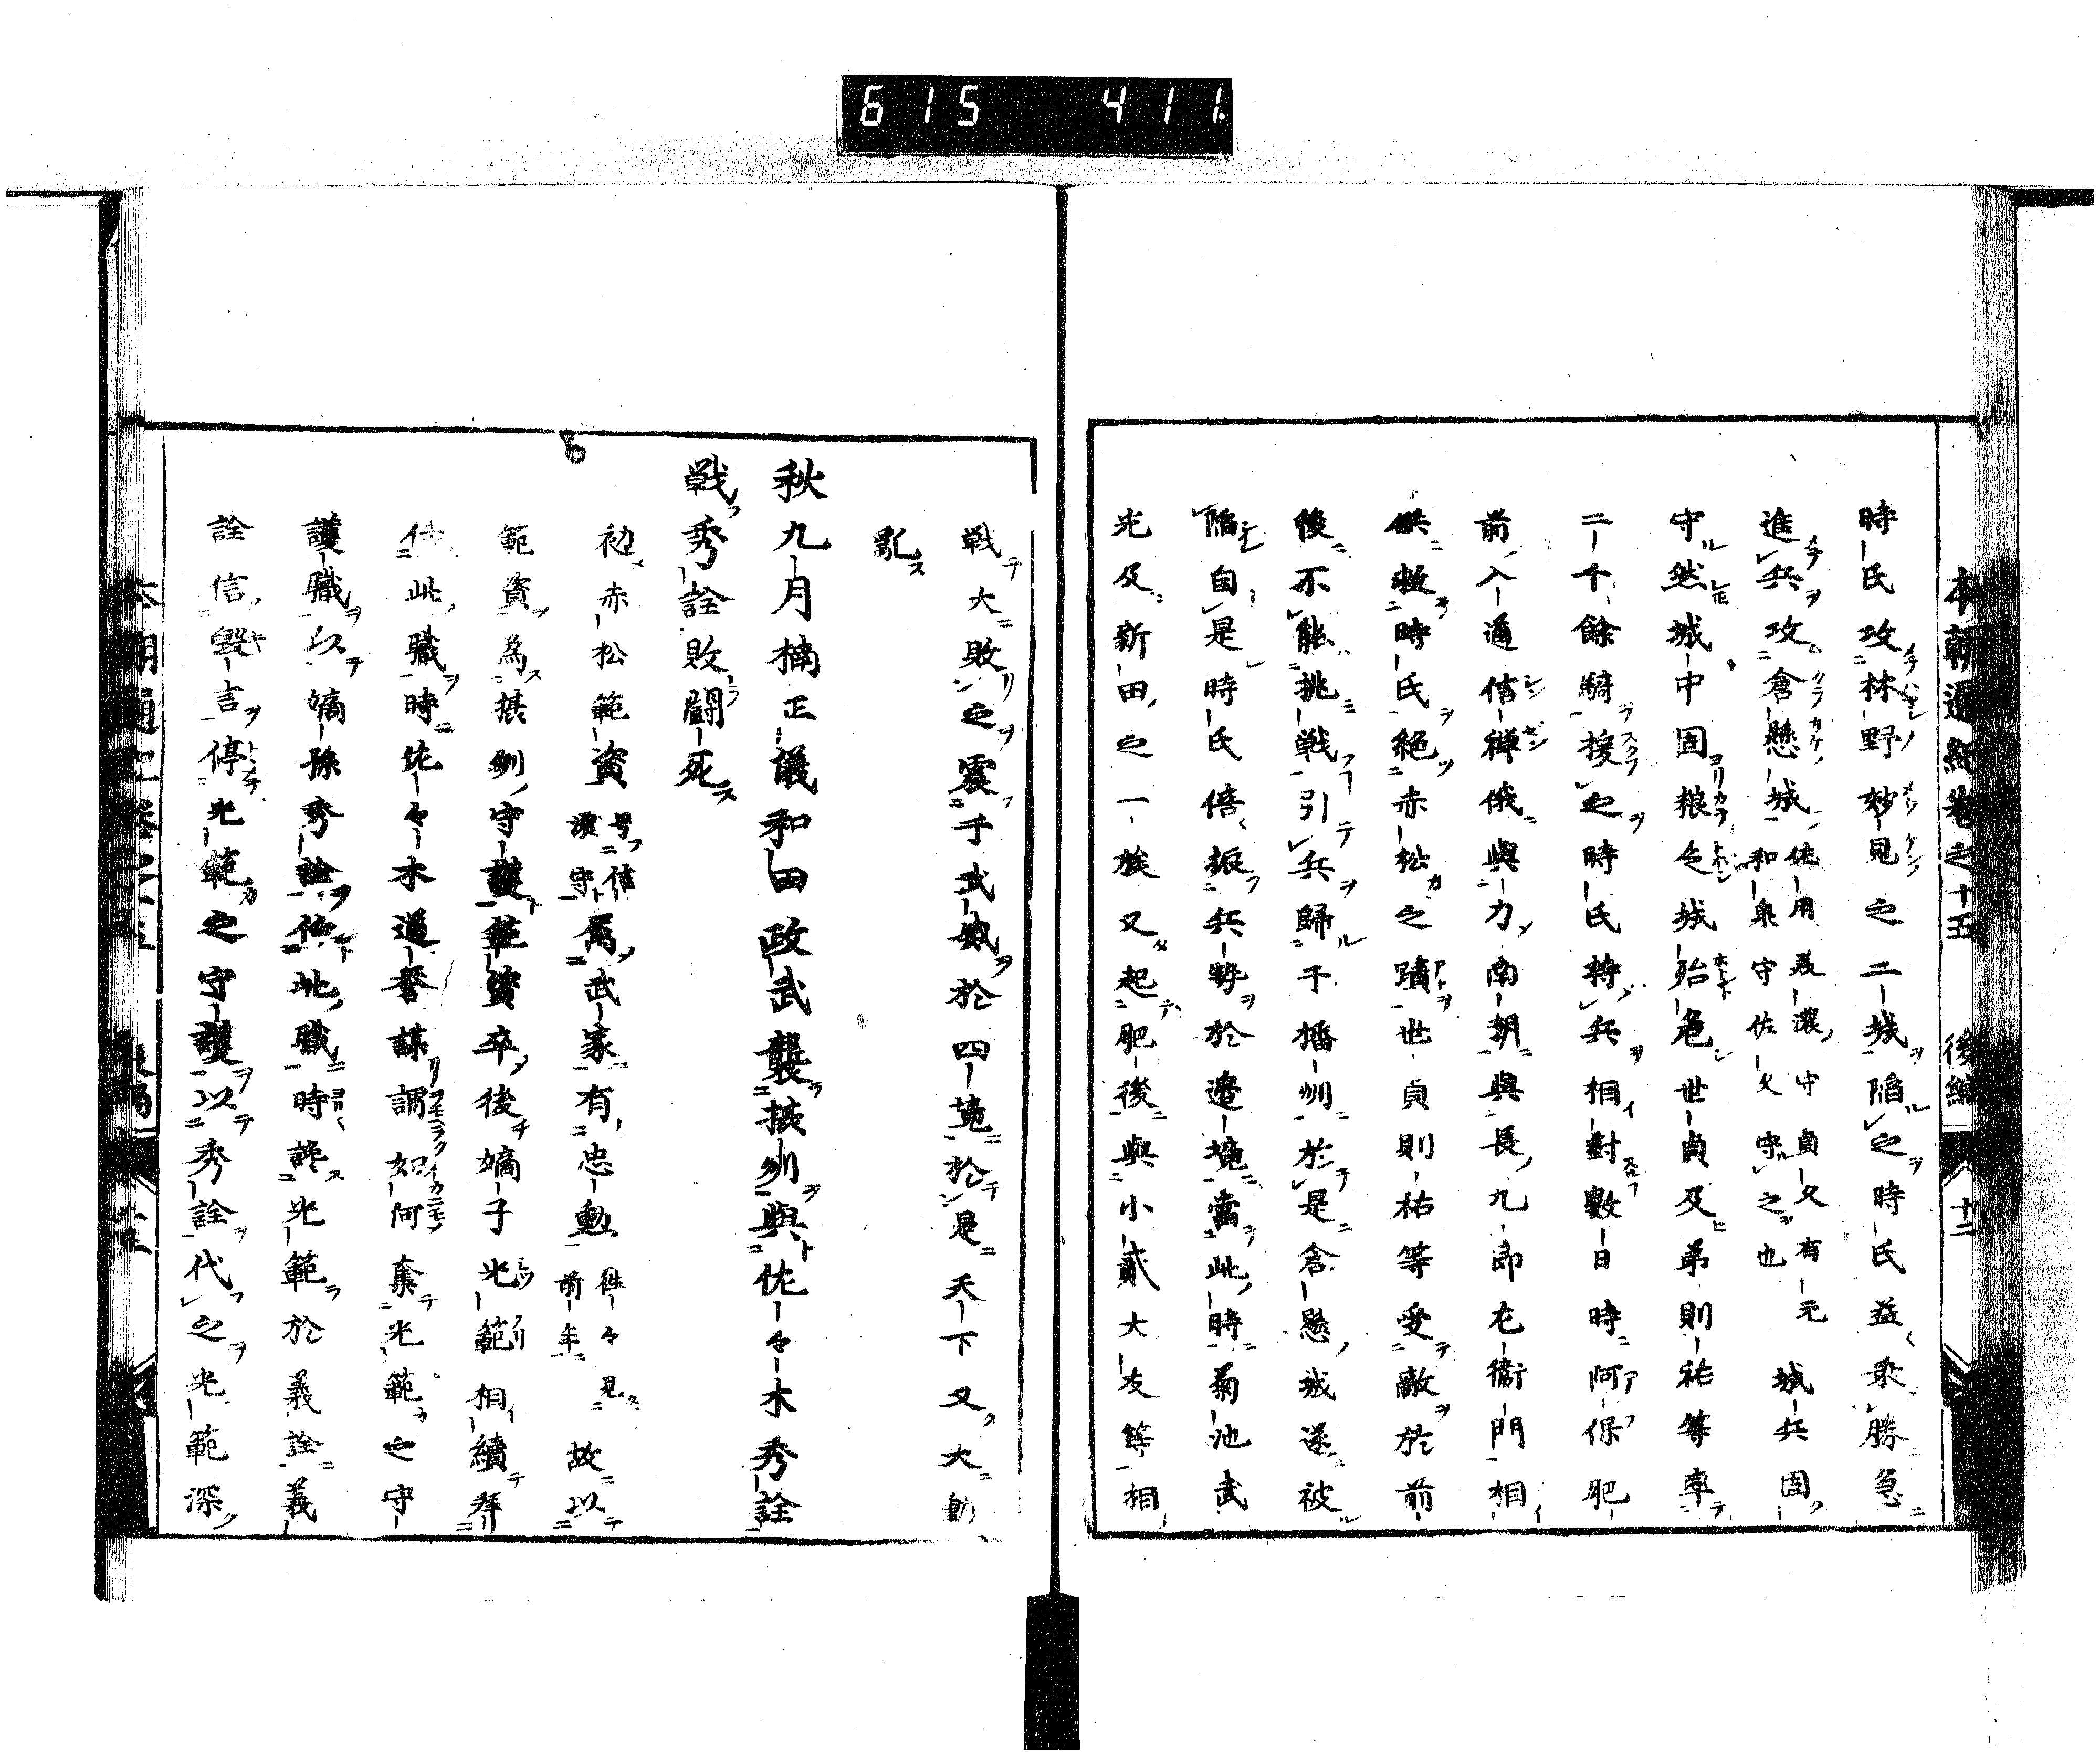 615 411
本朝通紀卷之十五 後編 十二
時氏攻林野妙見之二城陷之時氏益乘勝急
進兵攻倉懸城佐用美濃守貞久有元和泉守佐久守之也城兵固
守然城中固粮乏城殆危世貞及弟則祐等率
二千餘騎援之時氏將兵相對數日時阿保肥
前入道信禪俄與力南朝與長九郎左衞門相
供救時氏絕赤松之蹟世貞則祐等受敵於前
後不能挑戰引兵歸于播州於是倉懸城遂被
陷自是時氏倍振兵勢於邊境當此時菊池武
光及新田之一族又起肥後與小貳大友等相
戰大敗之震于武威於四境於是天下又大動
亂
秋九月楠正儀和田政武襲摂州與佐々木秀詮
戰秀詮敗鬪死
初赤松範資号信濃守屬武家有忠勳件々見前年故以
範資為摂州守護範資卒後嫡子光範相續拜
任此職時佐々木道誉謀謂如何奪光範之守
護職以嫡孫秀詮任此職時讒光範於義詮義
詮信毀言停光範之守護以秀詮代之光範深